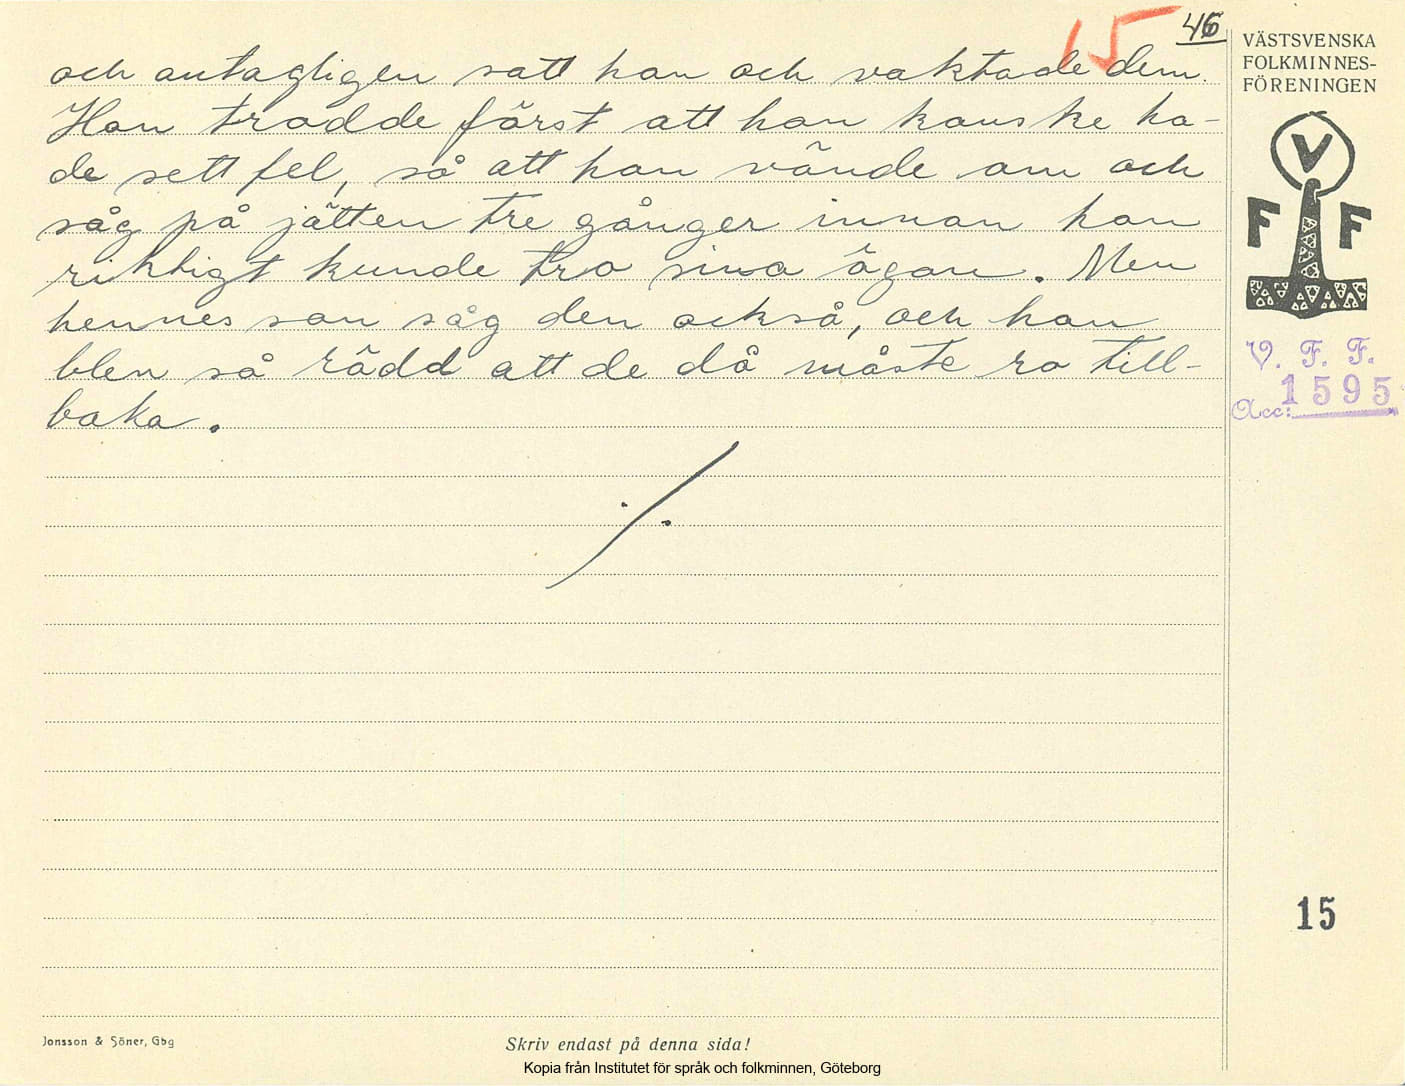 15
46
och antagligen satt han och vaktade dem.
Hon trodde först att hon kanske ha-
de sett fel, så att hon vände om och
såg på jätten tre gånger innan hon
riktigt kunde tro sina ögon. Men
hennes son såg den också, och han
blev så rädd att de då måste ro till-
baka.
VÄSTSVENSKA
FOLKMINNES-
FÖRENINGEN
V
F F
V. F. F.
Acc: 1595
15
Jonsson & Söner, Gbg
Skriv endast på denna sida!
Kopia från Institutet för språk och folkminnen, Göteborg